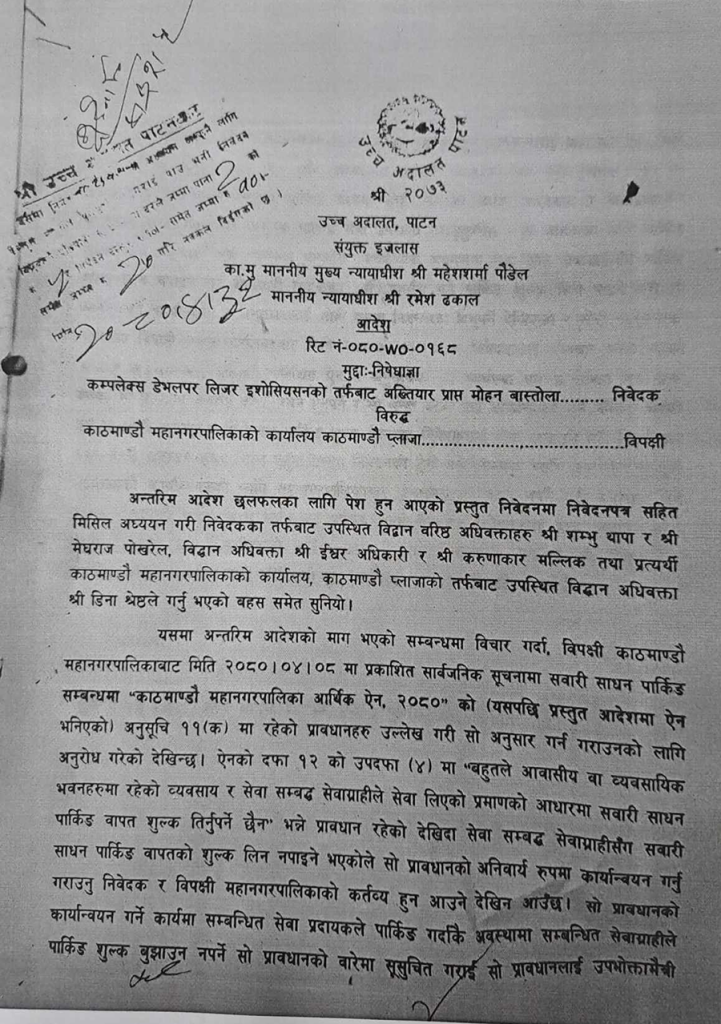 उच्च अदालत पाटन
श्री २०७३
उच्च अदालत, पाटन
संयुक्त इजलास
का.मु माननीय मुख्य न्यायाधीश श्री महेशशर्मा पौडेल
माननीय न्यायाधीश श्री रमेश ढकाल
आदेश
रिट नं-०८०-WO-०१६८
मुद्दाः-निषेधाज्ञा
कम्पलेक्स डेभलपर लिजर इशोसियसनको तर्फबाट अख्तियार प्राप्त मोहन बास्तोला......... निवेदक
विरुद्ध
काठमाण्डौ महानगरपालिकाको कार्यालय काठमाण्डौ प्लाजा.......................................विपक्षी
अन्तरिम आदेश छलफलका लागि पेश हुन आएको प्रस्तुत निवेदनमा निवेदनपत्र सहित
मिसिल अध्ययन गरी निवेदकका तर्फबाट उपस्थित विद्वान वरिष्ठ अधिवक्ताहरु श्री शम्भु थापा र श्री
मेघराज पोखरेल, विद्वान अधिवक्ता श्री ईश्वर अधिकारी र श्री करुणाकर मल्लिक तथा प्रत्यर्थी
काठमाण्डौ महानगरपालिकाको कार्यालय, काठमाण्डौ प्लाजाको तर्फबाट उपस्थित विद्वान अधिवक्ता
श्री डिना श्रेष्ठले गर्नु भएको बहस समेत सुनियो।
यसमा अन्तरिम आदेशको माग भएको सम्बन्धमा विचार गर्दा, विपक्षी काठमाण्डौ
महानगरपालिकाबाट मिति २०८०।०४।०८ मा प्रकाशित सार्वजनिक सूचनामा सवारी साधन पार्किङ
सम्बन्धमा “काठमाण्डौ महानगरपालिका आर्थिक ऐन, २०८०” को (यसपछि प्रस्तुत आदेशमा ऐन
भनिएको) अनुसूचि ११(क) मा रहेको प्रावधानहरु उल्लेख गरी सो अनुसार गर्न गराउनको लागि
अनुरोध गरेको देखिन्छ। ऐनको दफा १२ को उपदफा (४) मा “बहुतले आवासीय वा व्यवसायिक
भवनहरुमा रहेको व्यवसाय र सेवा सम्बद्ध सेवाग्राहीले सेवा लिएको प्रमाणको आधारमा सवारी साधन
पार्किङ वापत शुल्क तिर्नुपर्ने छैन” भन्ने प्रावधान रहेको देखिदा सेवा सम्बद्ध सेवाग्राहीसँग सवारी
साधन पार्किङ वापतको शुल्क लिन नपाइने भएकोले सो प्रावधानको अनिवार्य रुपमा कार्यान्वयन गर्नु
गराउनु निवेदक र विपक्षी महानगरपालिकाको कर्तव्य हुन आउने देखिन आउँछ। सो प्रावधानको
कार्यान्वयन गर्ने कार्यमा सम्बन्धित सेवा प्रदायकले पार्किङ गर्दाकै अवस्थामा सम्बन्धित सेवाग्राहीले
पार्किङ शुल्क बुझाउन नपर्ने सो प्रावधानको वारेमा सूसुचित गराई सो प्रावधानलाई उपभोक्तामैत्री